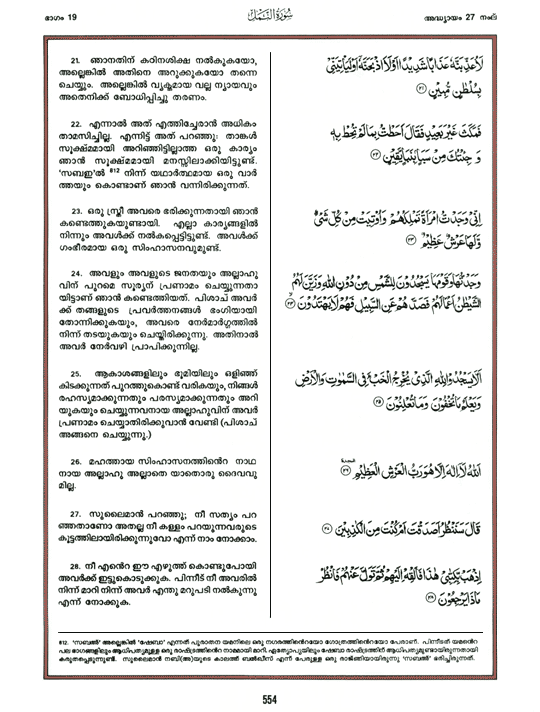 ഭാഗം 19
سُورَةُ النَّمْل
അദ്ധ്യായം 27 നംല്
21. ഞാനതിന് കഠിനശിക്ഷ നൽകുകയോ,
അല്ലെങ്കിൽ അതിനെ അറുക്കുകയോ തന്നെ
ചെയ്യും. അല്ലെങ്കിൽ വ്യക്തമായ വല്ല ന്യായവും
അതെനിക്ക് ബോധിപ്പിച്ചു തരണം.
22. എന്നാൽ അത് എത്തിച്ചേരാൻ അധികം
താമസിച്ചില്ല. എന്നിട്ട് അത് പറഞ്ഞു: താങ്കൾ
സൂക്ഷ്മമായി അറിഞ്ഞിട്ടില്ലാത്ത ഒരു കാര്യം
ഞാൻ സൂക്ഷ്മമായി മനസ്സിലാക്കിയിട്ടുണ്ട്.
'സബഇ'ൽ 812 നിന്ന് യഥാർത്ഥമായ ഒരു വാർ
ത്തയും കൊണ്ടാണ് ഞാൻ വന്നിരിക്കുന്നത്.
23. ഒരു സ്ത്രീ അവരെ ഭരിക്കുന്നതായി ഞാൻ
കണ്ടെത്തുകയുണ്ടായി. എല്ലാ കാര്യങ്ങളിൽ
നിന്നും അവൾക്ക് നൽകപ്പെട്ടിട്ടുണ്ട്. അവൾക്ക്
ഗംഭീരമായ ഒരു സിംഹാസനവുമുണ്ട്.
24. അവളും അവളുടെ ജനതയും അല്ലാഹു
വിന് പുറമെ സൂര്യന് പ്രണാമം ചെയ്യുന്നതാ
യിട്ടാണ് ഞാൻ കണ്ടെത്തിയത്. പിശാച് അവർ
ക്ക് തങ്ങളുടെ പ്രവർത്തനങ്ങൾ ഭംഗിയായി
തോന്നിക്കുകയും, അവരെ നേർമാർഗ്ഗത്തിൽ
നിന്ന് തടയുകയും ചെയ്തിരിക്കുന്നു. അതിനാൽ
അവർ നേർവഴി പ്രാപിക്കുന്നില്ല.
25. ആകാശങ്ങളിലും ഭൂമിയിലും ഒളിഞ്ഞ്
കിടക്കുന്നത് പുറത്തുകൊണ്ട് വരികയും, നിങ്ങൾ
രഹസ്യമാക്കുന്നതും പരസ്യമാക്കുന്നതും അറി
യുകയും ചെയ്യുന്നവനായ അല്ലാഹുവിന് അവർ
പ്രണാമം ചെയ്യാതിരിക്കുവാൻ വേണ്ടി (പിശാച്
അങ്ങനെ ചെയ്യുന്നു.)
26. മഹത്തായ സിംഹാസനത്തിൻെറ നാഥ
നായ അല്ലാഹു അല്ലാതെ യാതൊരു ദൈവവു
മില്ല.
27. സുലൈമാൻ പറഞ്ഞു; നീ സത്യം പറ
ഞ്ഞതാണോ അതല്ല നീ കള്ളം പറയുന്നവരുടെ
കൂട്ടത്തിലായിരിക്കുന്നുവോ എന്ന് നാം നോക്കാം.
28. നീ എൻെറ ഈ എഴുത്ത് കൊണ്ടുപോയി
അവർക്ക് ഇട്ടുകൊടുക്കുക. പിന്നീട് നീ അവരിൽ
നിന്ന് മാറി നിന്ന് അവർ എന്തു മറുപടി നൽകുന്നു
എന്ന് നോക്കുക.
لَأُعَذِّبَنَّهُ عَذَابًا شَدِيدًا أَوْ لَأَاذْبَحَنَّهُ أَوْ لَيَأْتِيَنِّي
بِسُلْطَٰنٍ مُّبِينٍ ﴿٢١﴾
فَمَكَثَ غَيْرَ بَعِيدٍ فَقَالَ أَحَطتُ بِمَا لَمْ تُحِطْ بِهِ
وَجِئْتُكَ مِن سَبَإٍ بِنَبَإٍ يَقِينٍ ﴿٢٢﴾
إِنِّي وَجَدتُّ امْرَأَةً تَمْلِكُهُمْ وَأُوتِيَتْ مِن كُلِّ شَيْءٍ
وَلَهَا عَرْشٌ عَظِيمٌ ﴿٢٣﴾
وَجَدتُّهَا وَقَوْمَهَا يَسْجُدُونَ لِلشَّمْسِ مِن دُونِ اللَّهِ وَزَيَّنَ لَهُمُ
الشَّيْطَٰنُ أَعْمَالَهُمْ فَصَدَّهُمْ عَنِ السَّبِيلِ فَهُمْ لَا يَهْتَدُونَ ﴿٢٤﴾
أَلَّا يَسْجُدُوا لِلَّهِ الَّذِي يُخْرِجُ الْخَبْءَ فِي السَّمَٰوَٰتِ وَالْأَرْضِ
وَيَعْلَمُ مَا تُخْفُونَ وَمَا تُعْلِنُونَ ﴿٢٥﴾
اللَّهُ لَا إِلَٰهَ إِلَّا هُوَ رَبُّ الْعَرْشِ الْعَظِيمِ ﴿٢٦﴾
قَالَ سَنَنظُرُ أَصَدَقْتَ أَمْ كُنتَ مِنَ الْكَٰذِبِينَ ﴿٢٧﴾
اذْهَب بِّكِتَٰبِي هَٰذَا فَأَلْقِهْ إِلَيْهِمْ ثُمَّ تَوَلَّ عَنْهُمْ فَانظُرْ
مَاذَا يَرْجِعُونَ ﴿٢٨﴾
812. 'സബഅ്' അല്ലെങ്കിൽ 'ഷേബാ' എന്നത് പുരാതന യമനിലെ ഒരു നഗരത്തിൻെറയോ ഗോത്രത്തിൻെറയോ പേരാണ്. പിന്നീടത് യമൻെറ
പല ഭാഗങ്ങളിലും ആധിപത്യമുള്ള ഒരു രാഷ്ട്രത്തിൻെറ നാമമായി മാറി. എത്യോപ്യയിലും ഷേബാ രാഷ്ട്രത്തിന് ആധിപത്യമുണ്ടായിരുന്നതായി
കരുതപ്പെടുന്നുണ്ട്. സുലൈമാൻ നബി(അ)യുടെ കാലത്ത് ബൽഖീസ് എന്ന് പേരുള്ള ഒരു രാജ്ഞിയായിരുന്നു 'സബഅ്' ഭരിച്ചിരുന്നത്.
554